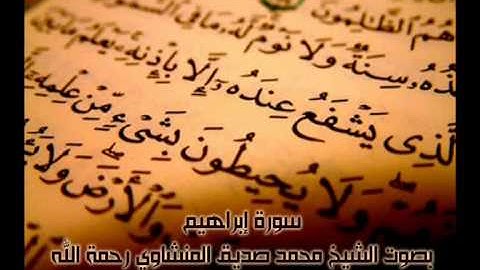 هُمُ ٱلظَّٰلِمُونَ
خُذُهُۥ سِنَةٌ وَلَا نَوْمٌ لَّهُۥ مَا فِي ٱلسَّمَٰوَ
لَّذِي يَشْفَعُ عِندَهُۥٓ إِلَّا بِإِذْنِهِۦ يَعْلَمُ مَا بَيْنَ
وَلَا يُحِيطُونَ بِشَيْءٍ مِّنْ عِلْمِهِۦٓ
وَٱلْأَرْضَ وَلَا
سورة إبراهيم
بصوت الشيخ محمد صديق المنشاوي رحمة الله